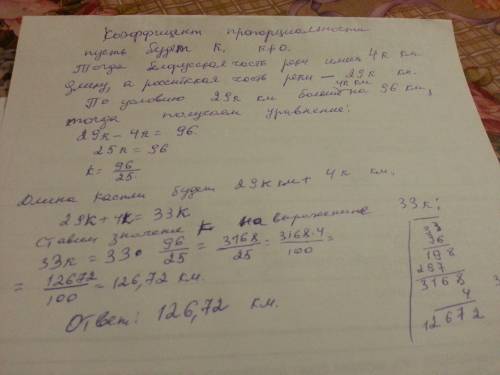 Коэффициент пропорциальности
пусть будет к, к≠0.
Тогда белорусская часть реки имеет 4к км
длину, а российская часть реки — 29к км.
По условию 29к км больше 4к км на 96 км,
тогда получаем уравнение:
29к - 4к = 96
25к = 96
к = 96/25
Длина Каспли будет 29к км + 4к км.
29к + 4к = 33к
Ставим значение к на выражение 33к:
33к = 33 · 96/25 = 3168/25 = 3168·4/100 =
= 12672/100 = 126,72 км.
Ответ: 126,72 км.
33
96
198
297
3168
4
12672